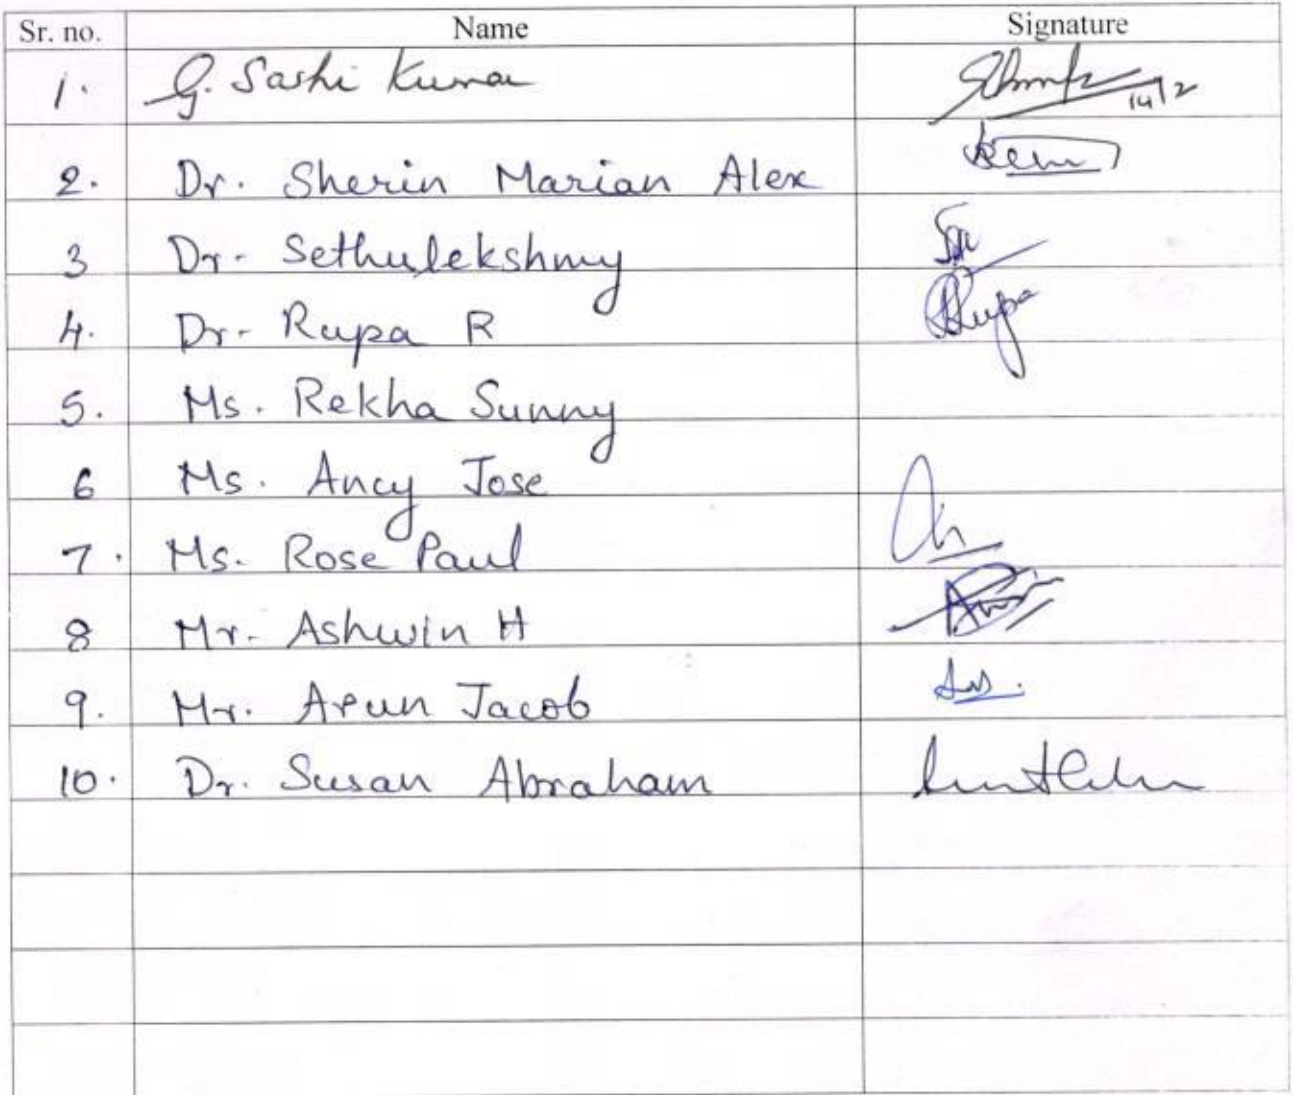 Sr. no. Name Signature
1. G. Sashi Kumar 14/2
2. Dr. Sherin Marian Alex
3 Dr. Sethulekshmy
4. Dr. Rupa R Rupa
5. Ms. Rekha Sunny
6 Ms. Ancy Jose
7. Ms. Rose Paul
8 Mr. Ashwin H
9. Mr. Arun Jacob
10. Dr. Susan Abraham